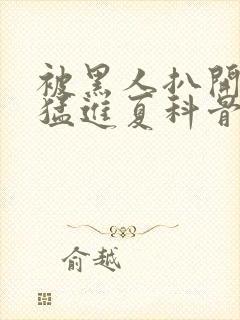 被黑人扒開
猛進夏科晉
俞越